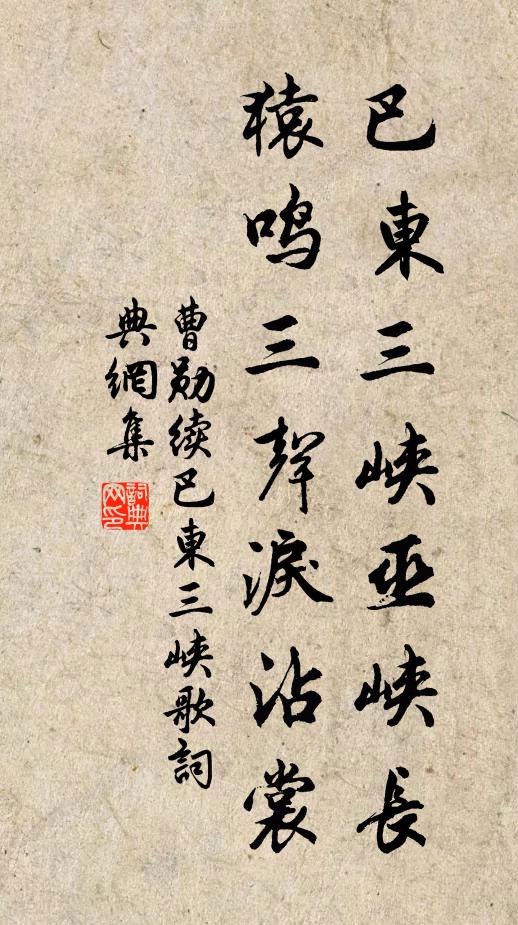 巴東三峽巫峽長
猿鳴三聲淚沾裳
曹勛續巴東三峽歌詞
典網集
詞典網印